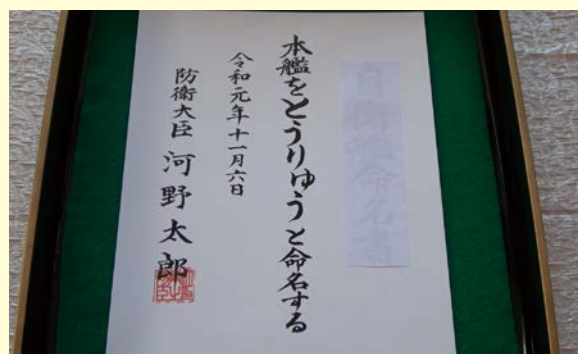 自衛艦命名書
本艦をとうりゅうと命名する
令和元年十一月六日
防衛大臣 河野太郎